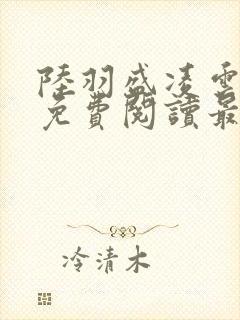 陸羽盛凌雲
免費閱讀最
冷清木